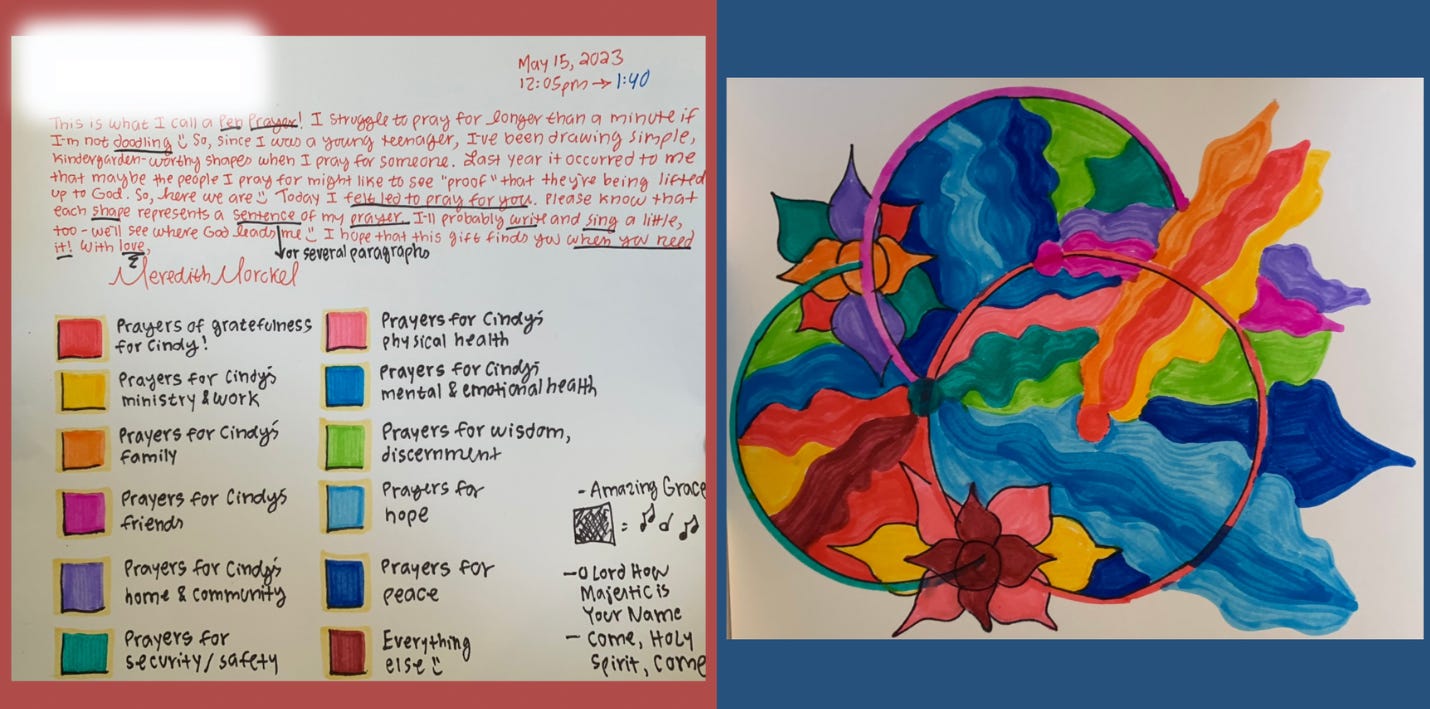 May 15, 2023
12:05pm → 1:40
This is what I call a Pen Prayer! I struggle to pray for longer than a minute if
I'm not doodling :) So, since I was a young teenager, I've been drawing simple,
kindergarden-worthy shapes when I pray for someone. Last year it occurred to me
that maybe the people I pray for might like to see "proof" that they're being lifted
up to God. So, here we are :) Today I felt led to pray for you. Please know that
each shape represents a sentence of my prayer. I'll probably write and sing a little,
too - we'll see where God leads me :) I hope that this gift finds you when you need
it! With love,
or several paragraphs
Meredith Morckel
Prayers of gratefulness
for Cindy!
Prayers for Cindy's
ministry & work
Prayers for Cindy's
family
Prayers for Cindy's
friends
Prayers for Cindy's
home & community
Prayers for
security/safety
Prayers for Cindy's
physical health
Prayers for Cindy's
mental & emotional health
Prayers for wisdom,
discernment
Prayers for
hope
Prayers for
peace
Everything
else :)
- Amazing Grace
= ♫ d ♫
- O Lord How
Majestic is
Your Name
- Come, Holy
Spirit, Come